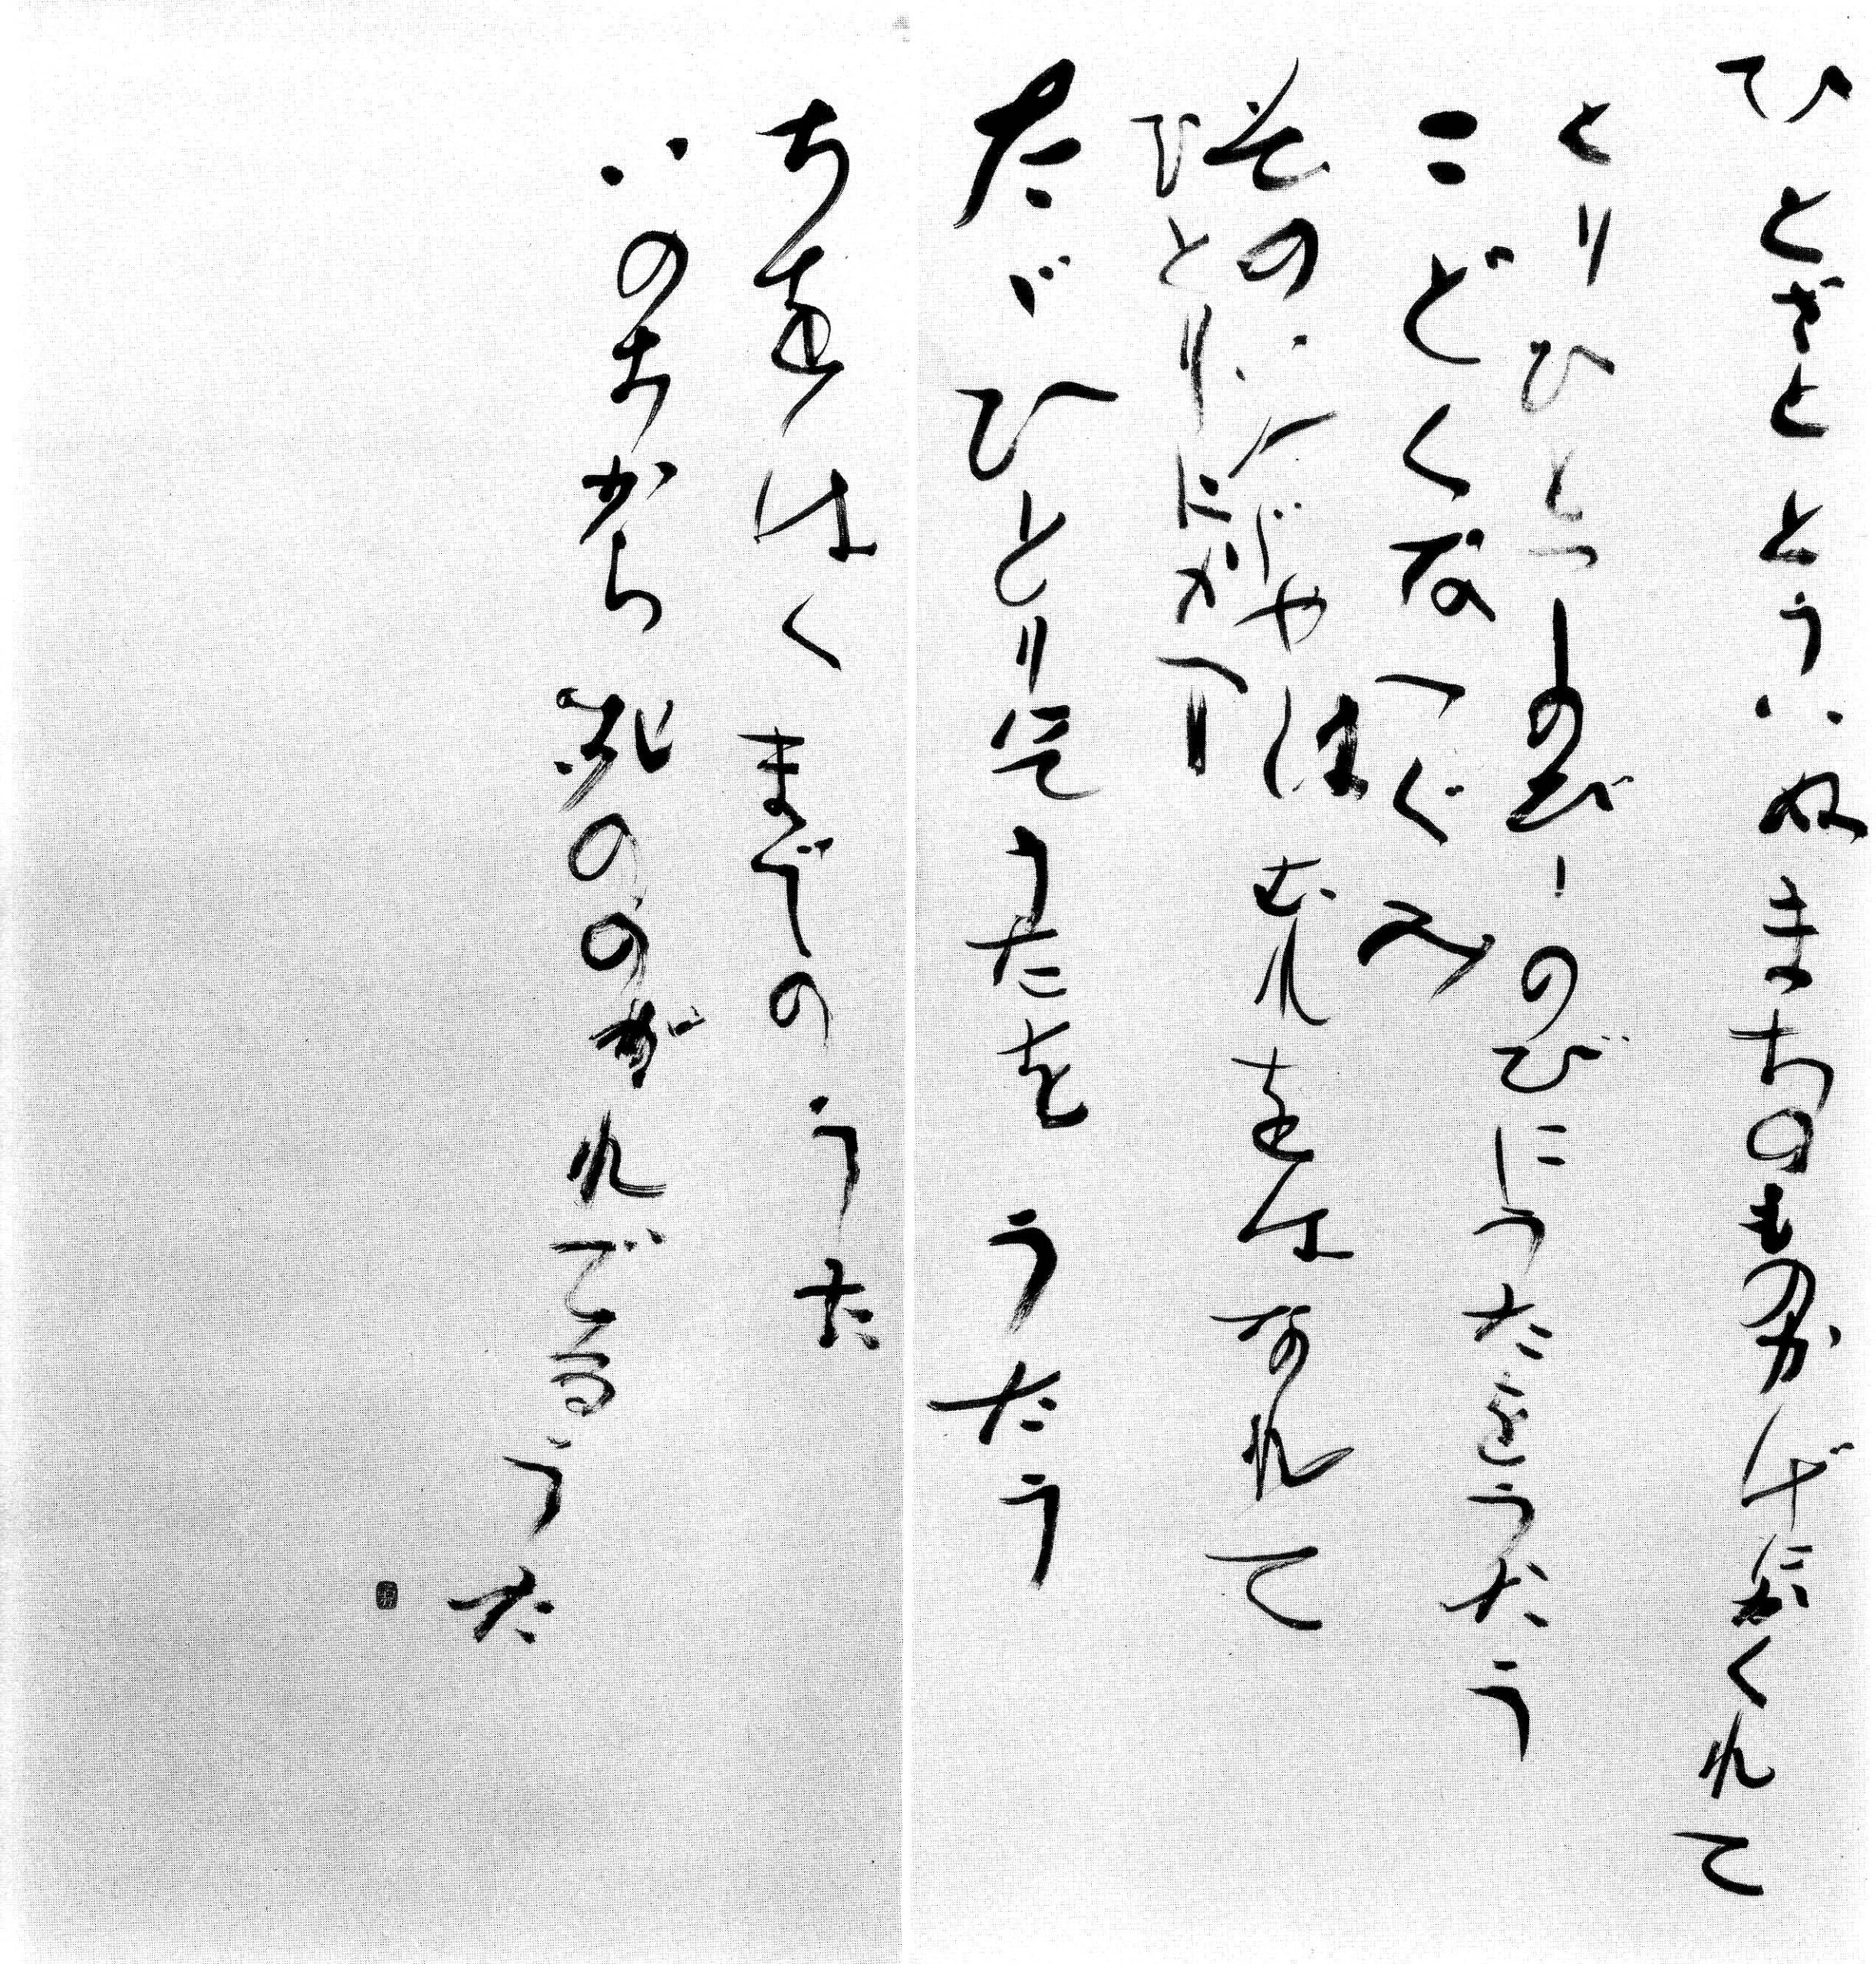 ひとざととういぬまちのものかげにかくれて
とりひとつしのびしのびにうたをうたう
こどくなつぐみ
そのいんじゃはむれをはなれて
ひとりにかへり
たゞひとりにてうたをうたう
ちをはくまでのうた
いのちから死ののがれでるうた